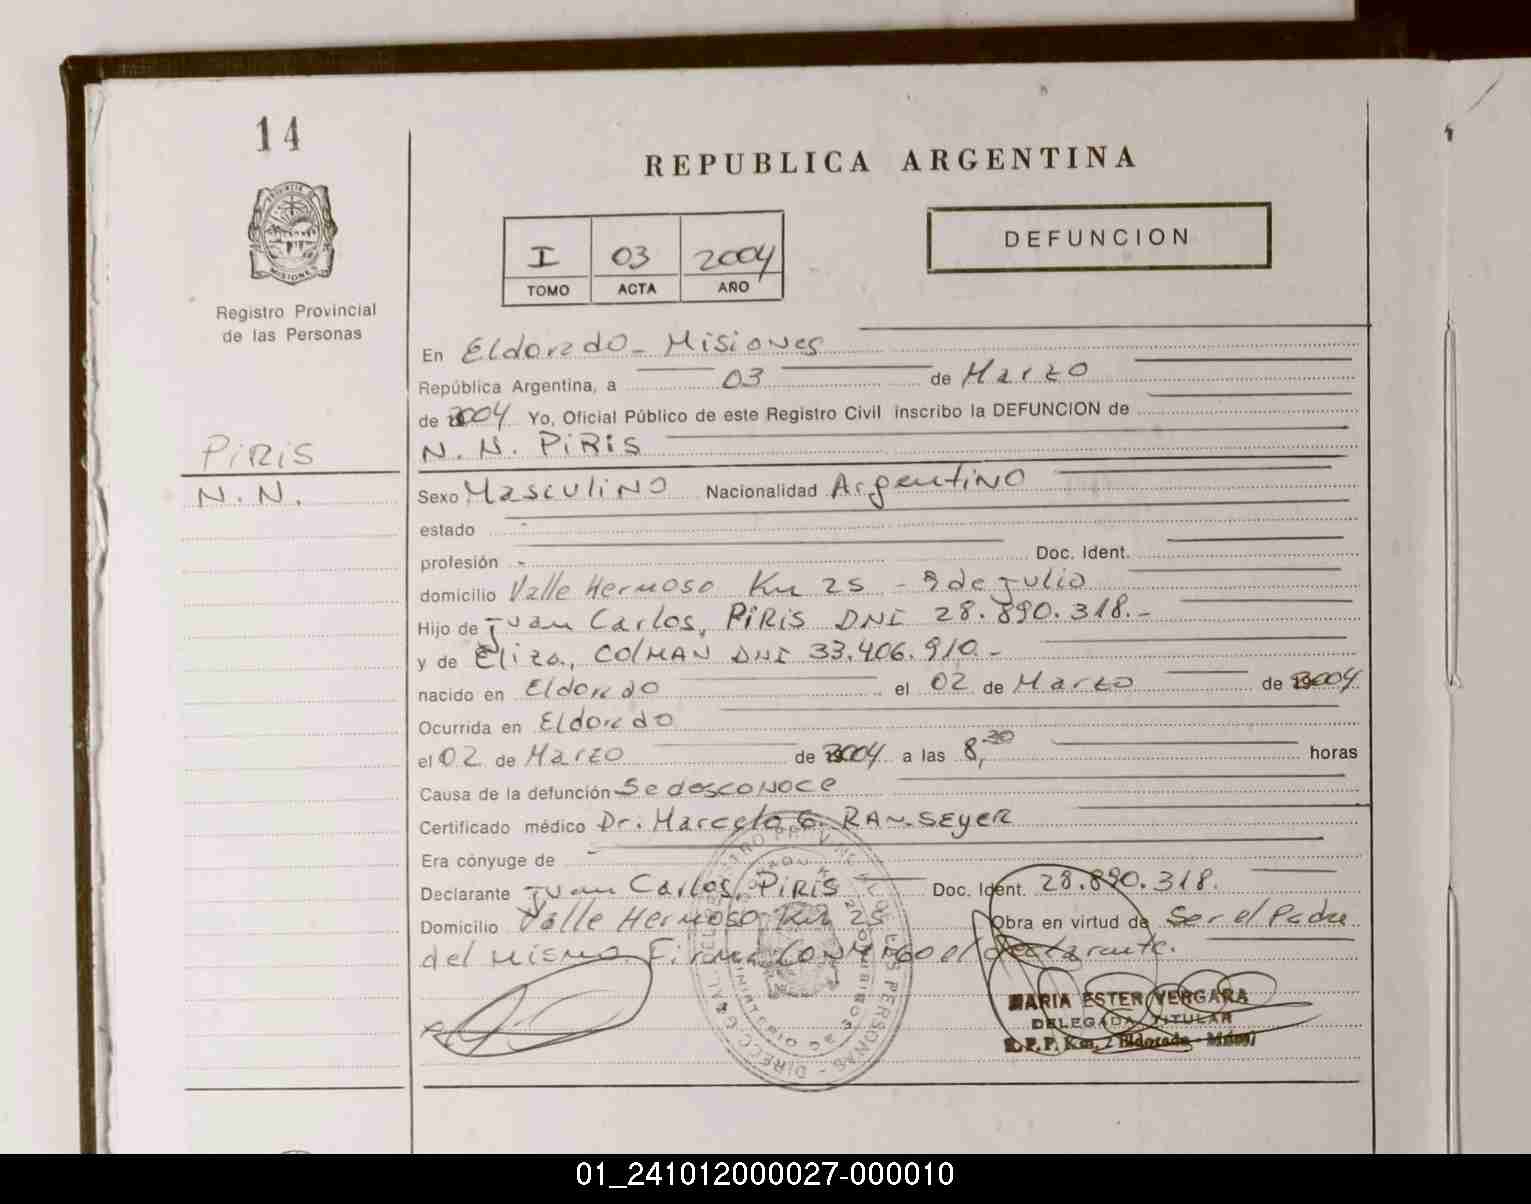 14
PROVINCIA DE
MISIONES
Registro Provincial
de las Personas
REPUBLICA ARGENTINA
I 03 2004
TOMO ACTA AÑO
DEFUNCION
En Eldorado - Misiones
República Argentina, a 03 de Marzo
de 2004 Yo, Oficial Público de este Registro Civil inscribo la DEFUNCION de
PiRiS
N. N. PiRiS
N. N.
Sexo Masculino Nacionalidad Argentino
estado -
profesión - Doc. Ident.
domicilio Valle Hermoso Km 25 - 9 de Julio
Hijo de Juan Carlos, PiRiS DNI 28.890.318.-
y de Eliza, COlMAN DNI 33.406.910.-
nacido en Eldorado el 02 de Marzo de 2004
Ocurrida en Eldorado
el 02 de Marzo de 2004 a las 8,30 horas
Causa de la defunción Se desconoce
Certificado médico Dr. Marcelo G. RAMSEYER
Era cónyuge de -
Declarante Juan Carlos, PiRiS Doc. Ident. 28.890.318.
Domicilio Valle Hermoso Km 25 Obra en virtud de Ser el Padre
del mismo. Firma CONMIGO el declarante.
MARIA ESTER VERGARA
DELEGADA TITULAR
R.P.P. Km. 2 Eldorado - Mnes.
01_241012000027-000010